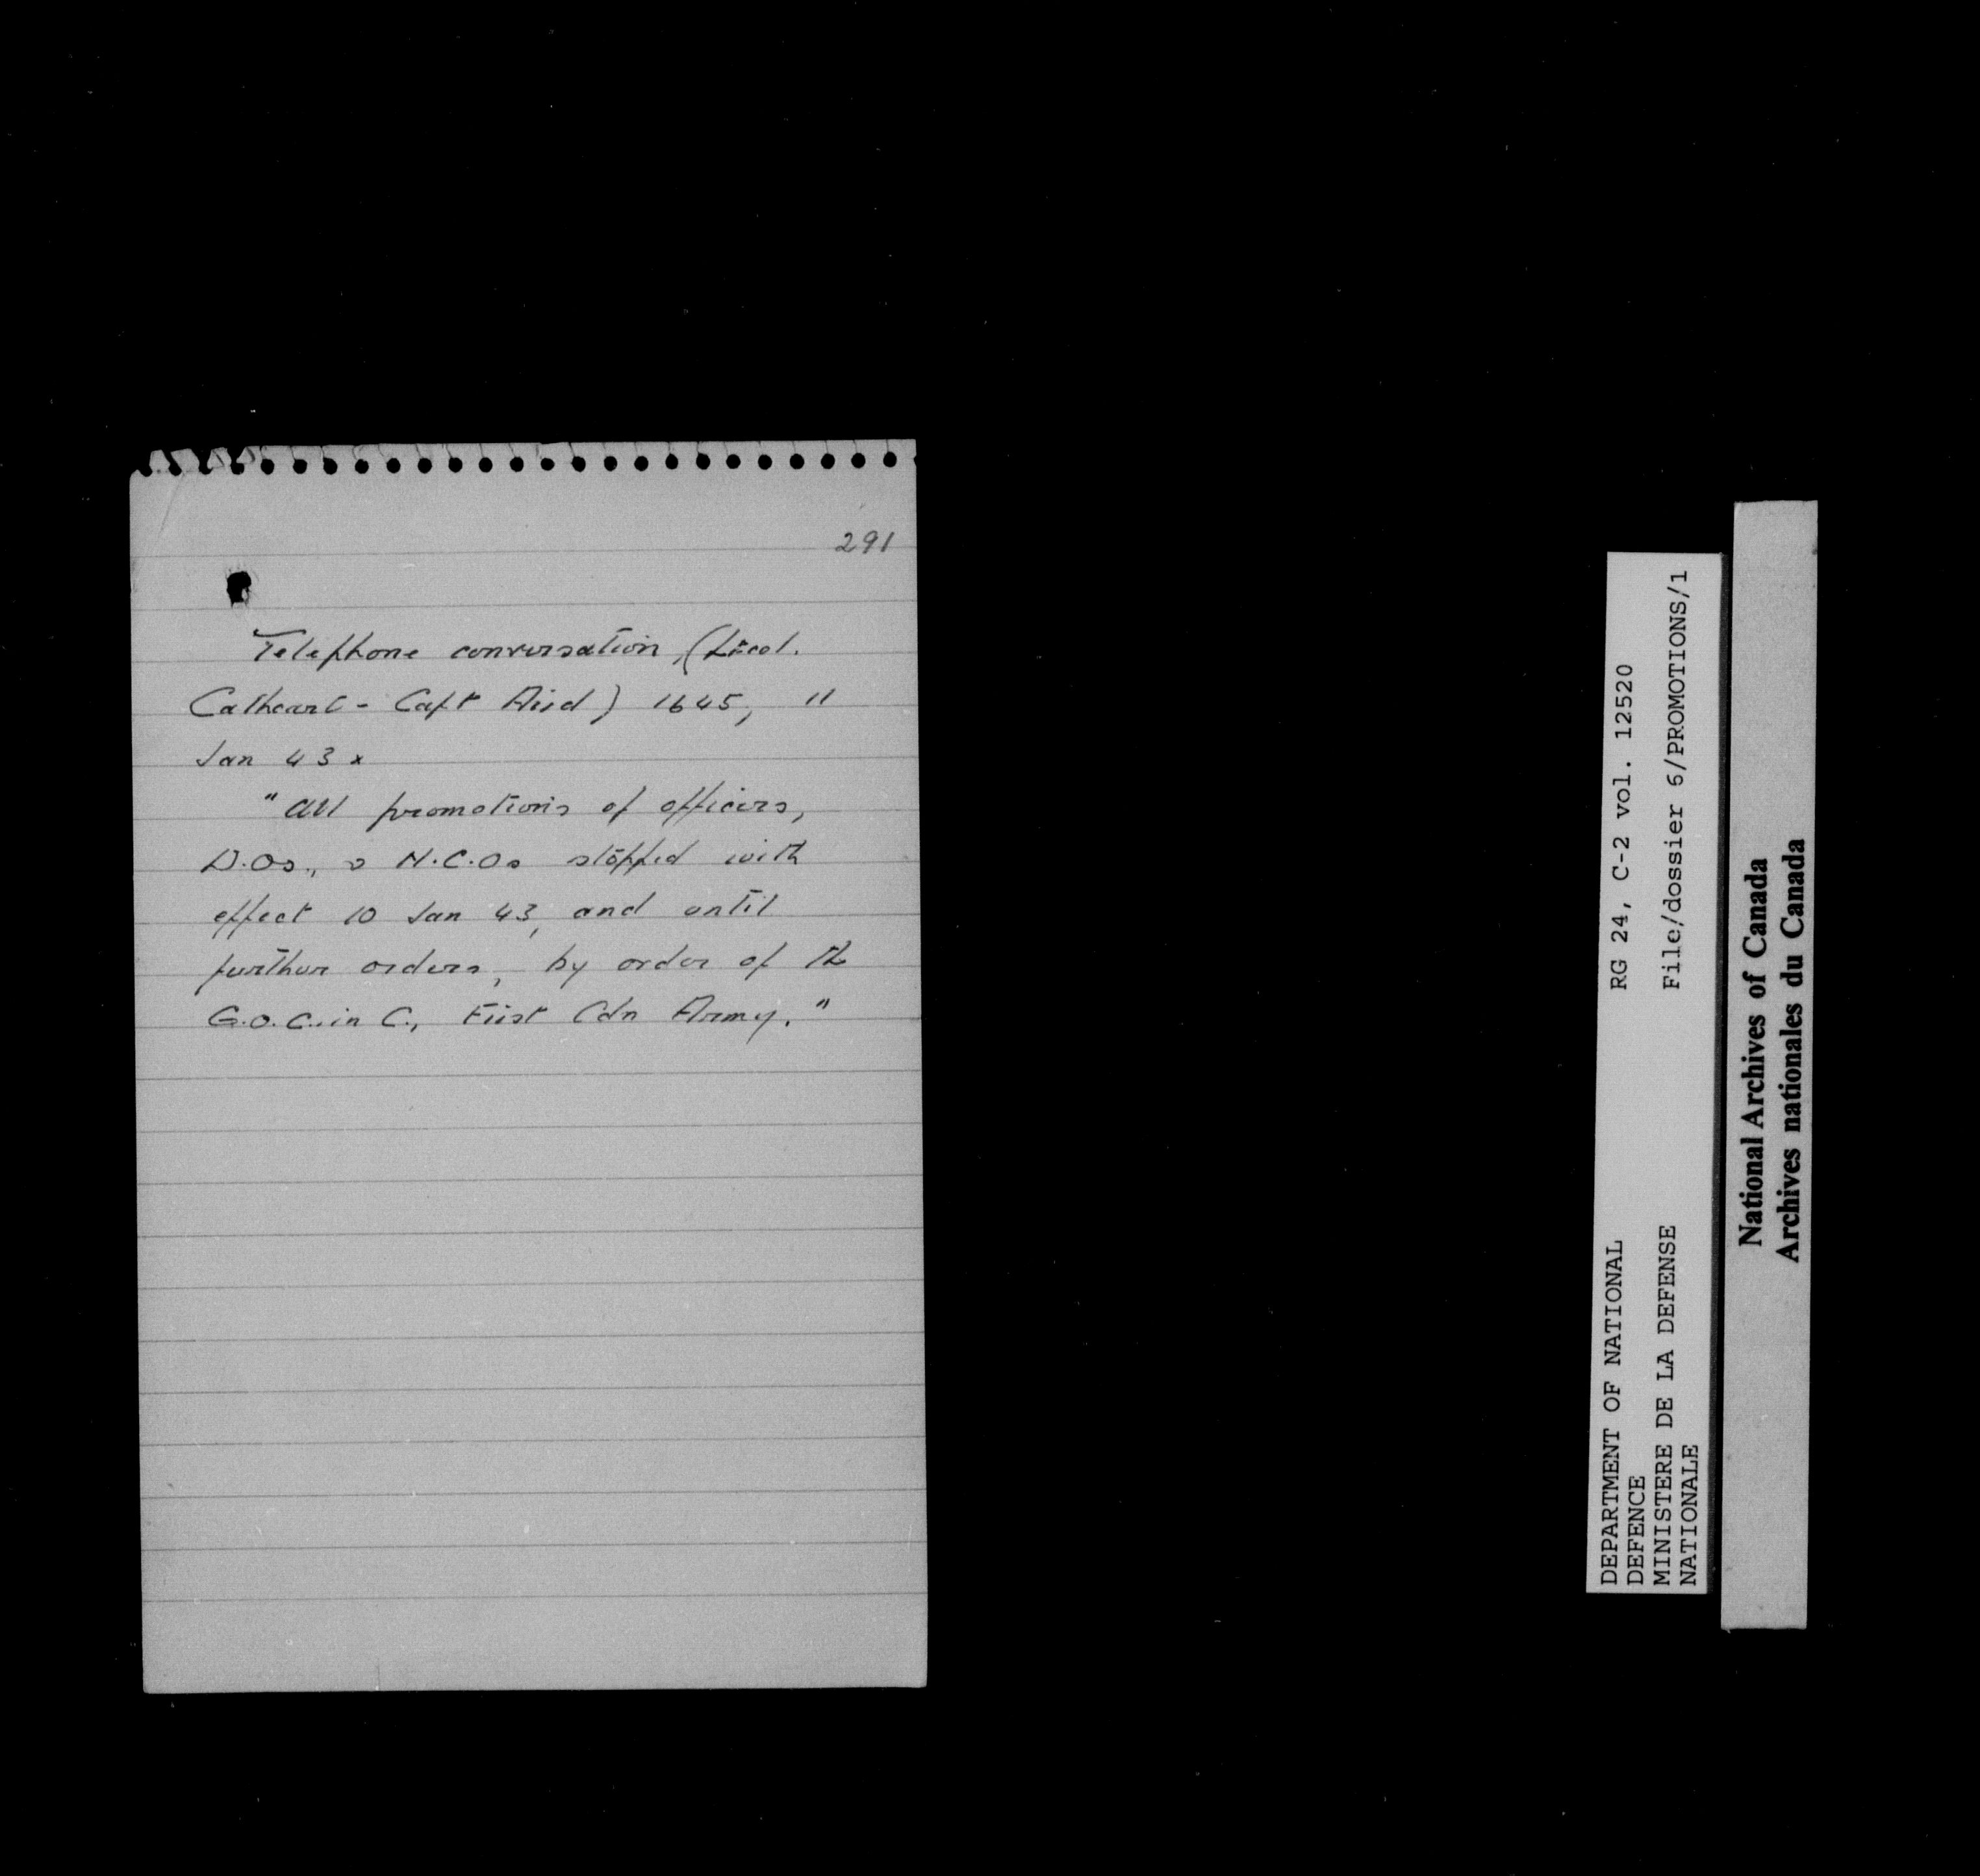 291
Telephone conversation (Ltcol.
Cathcart - Capt Aird) 1645, 11
Jan 43 x
"All promotions of officers,
W.Os., & N.C.Os stopped with
effect 10 Jan 43, and until
further orders, by order of the
G.O.C. in C., First Cdn Army."
DEPARTMENT OF NATIONAL
DEFENCE
MINISTERE DE LA DEFENSE
NATIONALE
RG 24, C-2 vol. 12520
File/dossier 6/PROMOTIONS/1
National Archives of Canada
Archives nationales du Canada